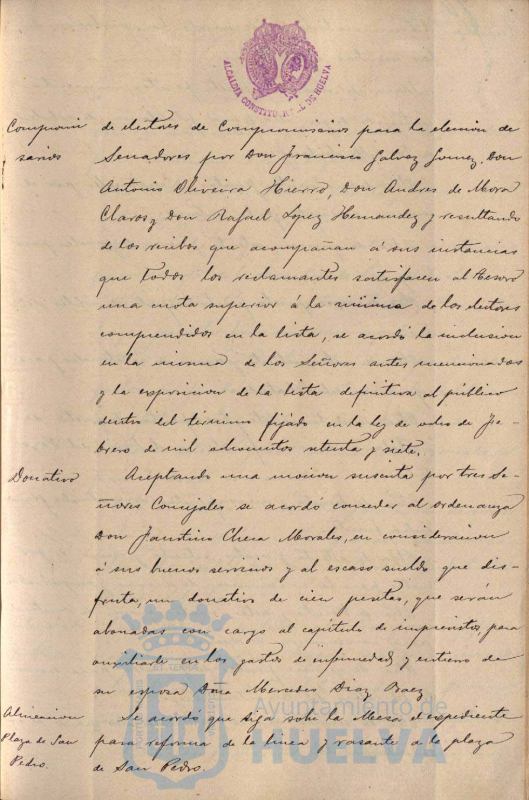 ALCALDIA CONSTITUCIONAL DE HUELVA
Compromi
sarios
de electores de Compromisarios para la eleccion de
Senadores por Don Francisco Galvez Gomez, Don
Antonio Oliveira Hierro, Don Andres de Mora
Claros y Don Rafael Lopez Hernandez y resultando
de los recibos que acompañan á sus instancias
que todos los reclamantes satisfacen al Tesoro
una cuota superior á la minima de los electores
comprendidos en la lista, se acordó la inclusion
en la misma de los Señores antes mencionados
y la exposicion de la lista definitiva al público
dentro del termino fijado en la ley de ocho de Fe-
brero de mil ochocientos setenta y siete.
Donativo
Aceptando una mocion suscrita por tres Se-
ñores Concejales se acordó conceder al ordenanza
Don Faustino Checa Morales, en consideracion
á sus buenos servicios y al escaso sueldo que dis-
fruta, un donativo de cien pesetas, que serán
abonadas con cargo al capitulo de imprevistos para
auxiliarle en los gastos de enfermedad y entierro de
su esposa Doña Mercedes Diaz Baez.
Alineacion
Plaza de San
Pedro.
Se acordó que siga sobre la Mesa el expediente
para reforma de la linea y rasante de la plaza
de San Pedro.
Ayuntamiento de
HUELVA